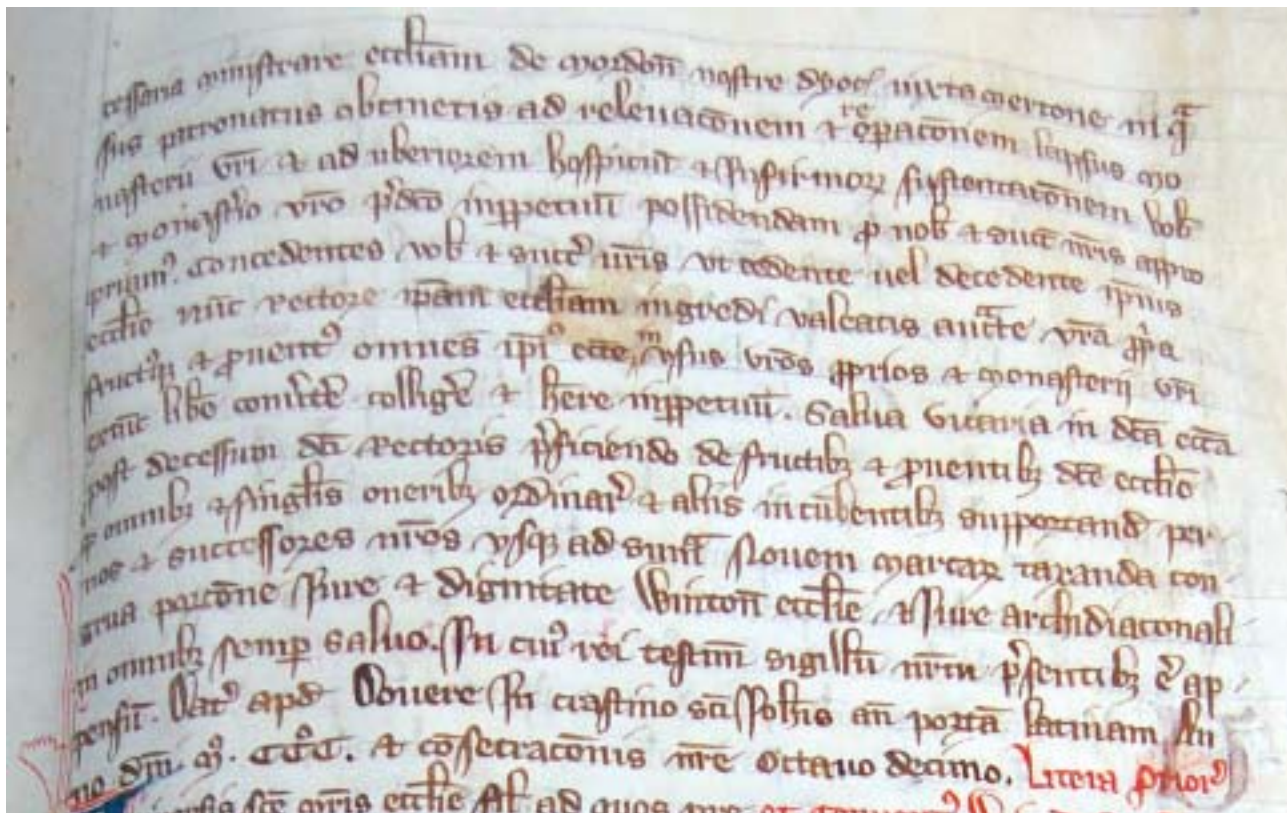 cessaria ministrare ecctiam de mordoñ nostre dyoc̃ iuxta mertone in qª
ius patronatus obtinetis ad releuacõnem ⁊ reparacõnem lapsus mo
nasterii vr̃i ⁊ ad uberiorem hospicũ ⁊ infirmoꝝ sustentacõnem vob̃
⁊ monast'io vr̃o p̃dc̃o inꝑpetuũ possidendam ꝓ nob̃ ⁊ succ̃ nr̃is appro
priam⁹. Concedentes vob̃ ⁊ succ̃ vr̃is vt cedente uel decedente ip̃ius
eccl̃ie nũc rectore ip̃am eccl̃iam ingredi valeatis auctªte vr̃a ꝓp̃a
fruct⁹qꝫ ⁊ ꝓuent⁹ omnes ip̃i⁹ ecc̃e in vsus vr̃os ꝓprios ⁊ monasterij vr̃i
lib̃e conu̾t̾e collig̾e ⁊ h̃ere inꝑpetuũ. Salua vicaria in dc̃a ecc̃a
post decessum dc̃i rectoris p̃ficiendo de fructibꝫ ⁊ ꝓuentibꝫ dc̃e eccl̃ie
ꝓ omnibꝫ ⁊ singl̃is oneribꝫ ordinar̾ ⁊ aliis incũbentibꝫ supportand̾ per
nos ⁊ successores nr̃os vsqꝫ ad sum̃ nouem marcaꝝ taxanda con
grua porcõne iure ⁊ dignitate Wintoñ eccl̃ie, ⁊ iure archidiaconali
in omnibꝫ semꝑ saluo. In cui⁹ rei testim̃ sigillũ nr̃m p̃sentibꝫ ẽ ap
pensũ. Dat̾ apd̾ Douere in crastino sc̃i Ioh̃is añ portã latinam An
no dñi. mͦ. CCͦC. ⁊ cõsecracõnis nr̃e octauo decimo. Litera prior̾
sc̃e mr̃is eccl̃ie ad quos